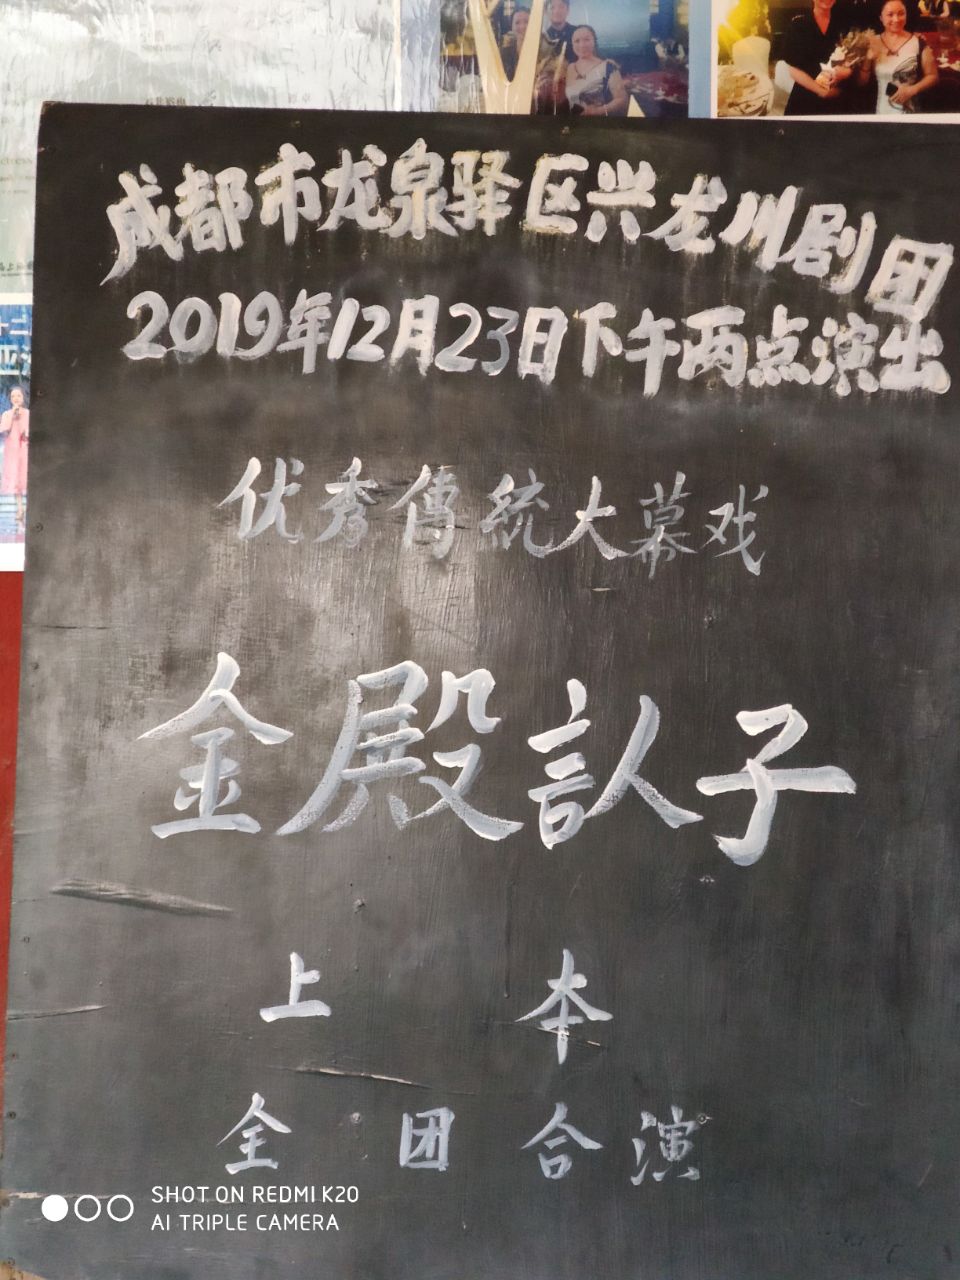 成都市龙泉驿区兴龙川剧团
2019年12月23日下午两点演出
优秀傳統大幕戏
金殿訫子
上本
全团合演
SHOT ON REDMI K20
AI TRIPLE CAMERA